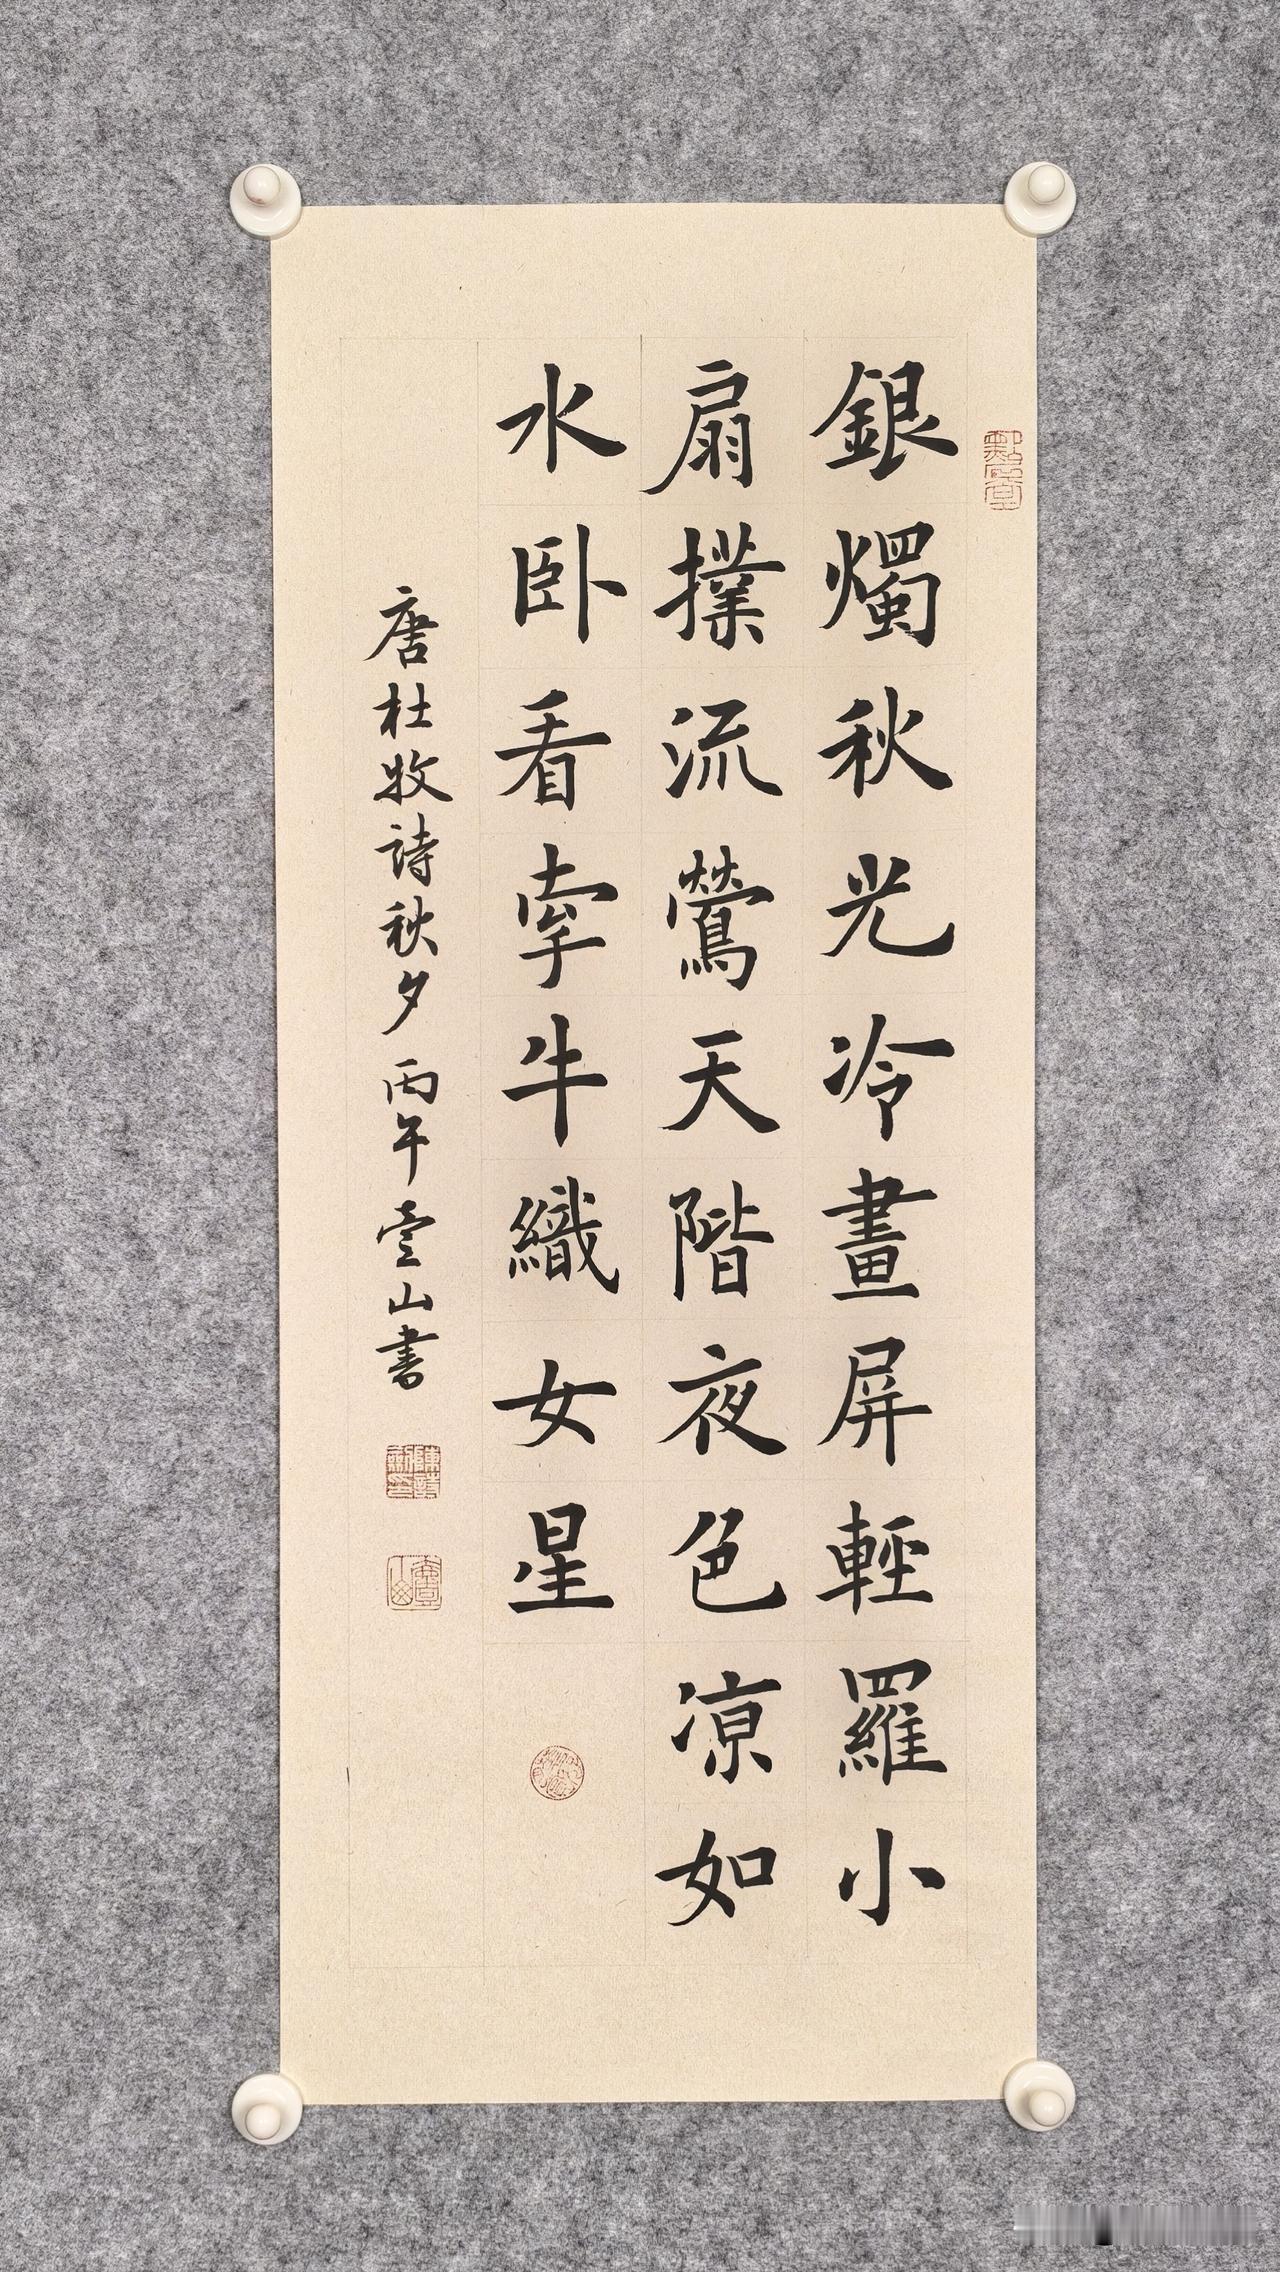 銀燭秋光冷畫屏輕羅小
扇撲流鶯天階夜色凉如
水卧看牽牛織女星
唐杜牧詩秋夕丙午雲山書